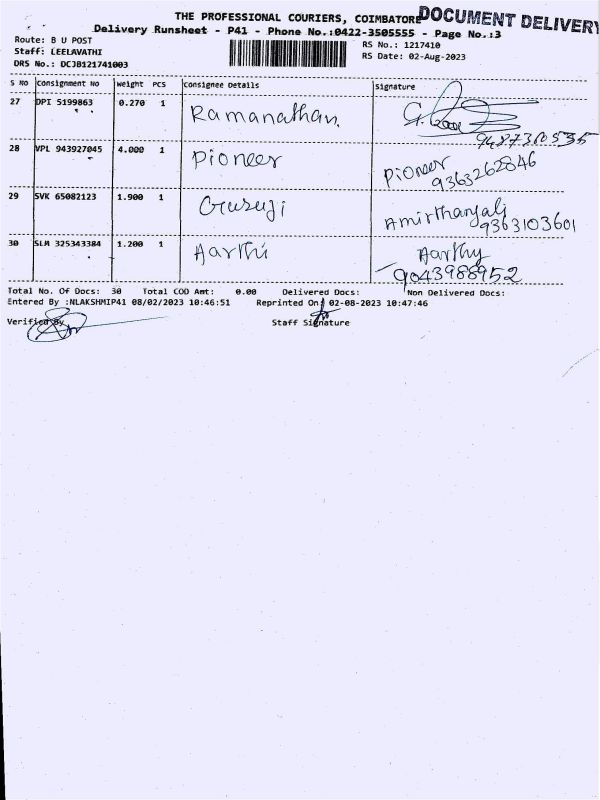 THE PROFESSIONAL COURIERS, COIMBATORE
DOCUMENT DELIVERY
Delivery Runsheet - P41 - Phone No.:0422-3505555 - Page No.:3
Route: B U POST
RS No.: 1217410
Staff: LEELAVATHI
RS Date: 02-Aug-2023
DRS No.: DCJB121741003
S NO Consignment No Weight PCS Consignee Details Signature
27 DPI 5199863 0.270 1 Ramanathan.
28 VPL 943927045 4.000 1 Pioneer Pioneer
9363262846
29 SVK 65082123 1.900 1 Guruji Amirthanjali
9363103601
30 SLM 325343384 1.200 1 Aarthi Aarthy
9043988952
Total No. Of Docs: 30 Total COD Amt: 0.00 Delivered Docs: Non Delivered Docs:
Entered By :NLAKSHMIP41 08/02/2023 10:46:51 Reprinted On: 02-08-2023 10:47:46
Verified By
Staff Signature